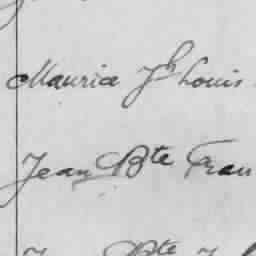 Maurice Jh Louis
Jean Bte Fran
Bte